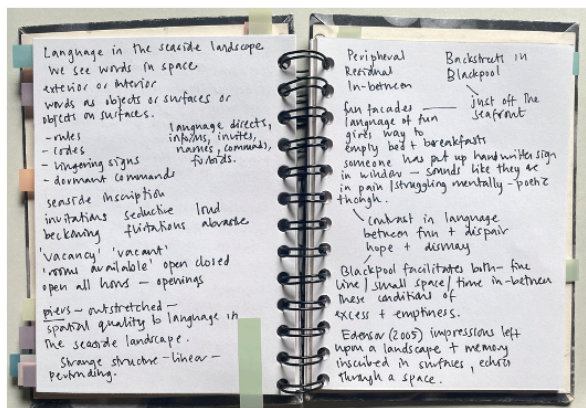 Language in the seaside landscape
We see words in space
exterior or interior
words as objects or surfaces or
objects on surfaces.
- rules
- codes
- lingering signs
- dormant commands
language directs,
informs, invites,
names, commands,
forbids.
seaside inscription
invitations seductive loud
beckoning flirtations abrasive
'vacancy' 'vacant'
'rooms available' open closed
open all hours - openings
piers - outstretched -
spatial quality to language in
the seaside landscape.
Strange structure - linear -
protruding.
Peripheral
Residual
In-between
Backstreets in
Blackpool
just off the
seafront
fun facades
language of fun
gives way to
empty bed + breakfasts
someone has put up handwritten sign
in window - sounds like they are
in pain / struggling mentally - poetic
though.
contrast in language
between fun + dispair
hope + dismay
Blackpool facilitates both - fine
line / small space / time in-between
these conditions of
excess + emptiness.
Edensor (2005) impressions left
upon a landscape + memory
inscribed in surfaces, echoes
through a space.